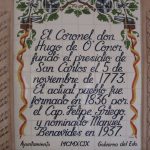 El Coronel don
Hugo de O'Conor,
fundó el presidio de
San Carlos el 5 de
noviembre de 1773.
El actual pueblo fue
formado en 1836 por
el Cap. Felipe Griego,
y nominado Manuel
Benavides en 1937.
Ayuntamiento MCMXCIX Gobierno del Edo.